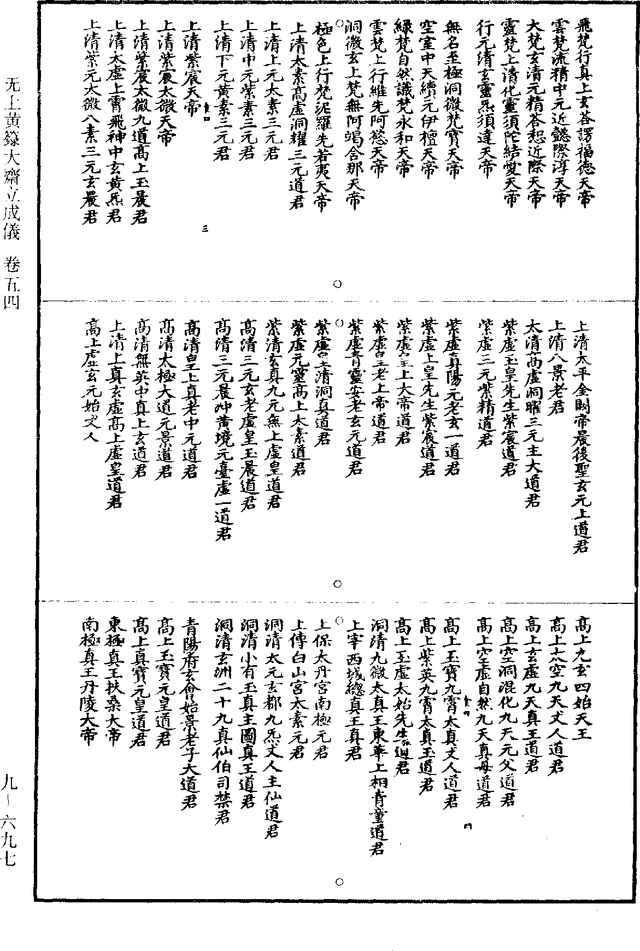 飛梵行真上玄荅謣福德天帝
雲梵流精中元近懿際淳天帝
大梵玄清元精荅恕近際天帝
靈梵上清化靈須陀結愛天帝
行元清玄靈炁須達天帝
無名至極洞微梵寶天帝
空室中天績元伊檀天帝
綠梵自然識梵永和天帝
雲梵上行維先阿慾天帝
洞微玄上梵無阿蝎含那天帝
極色上行梵泥羅先若夷天帝
上清太素高虛洞耀三元道君
上清上元太素三元君
上清中元紫素三元君
上清下元黃素三元君
上清紫宸天帝
上清紫宸太微天帝
上清紫宸太微九道高上玉晨君
上清太虛上霄飛神中玄黃炁君
上清紫元太微八素三元玄晨君
三
上清太平金闕帝晨後聖玄元上道君
上清八景老君
太清高虛洞曜三元主大道君
紫虛玉皇先生紫宸道君
紫虛三元紫精道君
紫虛真陽元老玄一道君
紫虛上皇先生紫宸道君
紫虛皇上大帝道君
紫虛皇老上帝道君
紫虛青靈安老玄元道君
紫虛皇清洞真道君
紫虛元靈高上太素道君
紫清玄真九元無上虛皇道君
高清三元玄老虛皇玉晨道君
高清三元晨冲黃境元臺虛一道君
高清皇上真老中元道君
高清太極大道元景道君
高清無英中真上玄道君
上清上真玄虛高上虛皇道君
高上虛玄元始丈人
高上九玄四始天王
高上太空九天丈人道君
高上玄虛九天真王道君
高上空洞混化九天元父道君
高上空虛自然九天真母道君
高上玉寶九霄太真丈人道君
高上紫英九霄太真玉道君
高上玉虛太始先生迴君
洞清九微太真王東華上相青童道君
上宰西城總真王真君
上保太丹宮南極元君
上傅白山宮太素元君
洞清太元玄都九炁丈人主仙道君
洞清小有玉真主圖真王道君
洞清玄洲二十九真仙伯司禁君
青陽府玄會始景老子大道君
高上玉寶元皇道君
高上真寶元皇道君
東極真王扶桑大帝
南極真王丹陵大帝
四
无上黃籙大齋立成儀 卷五四
九～六九七